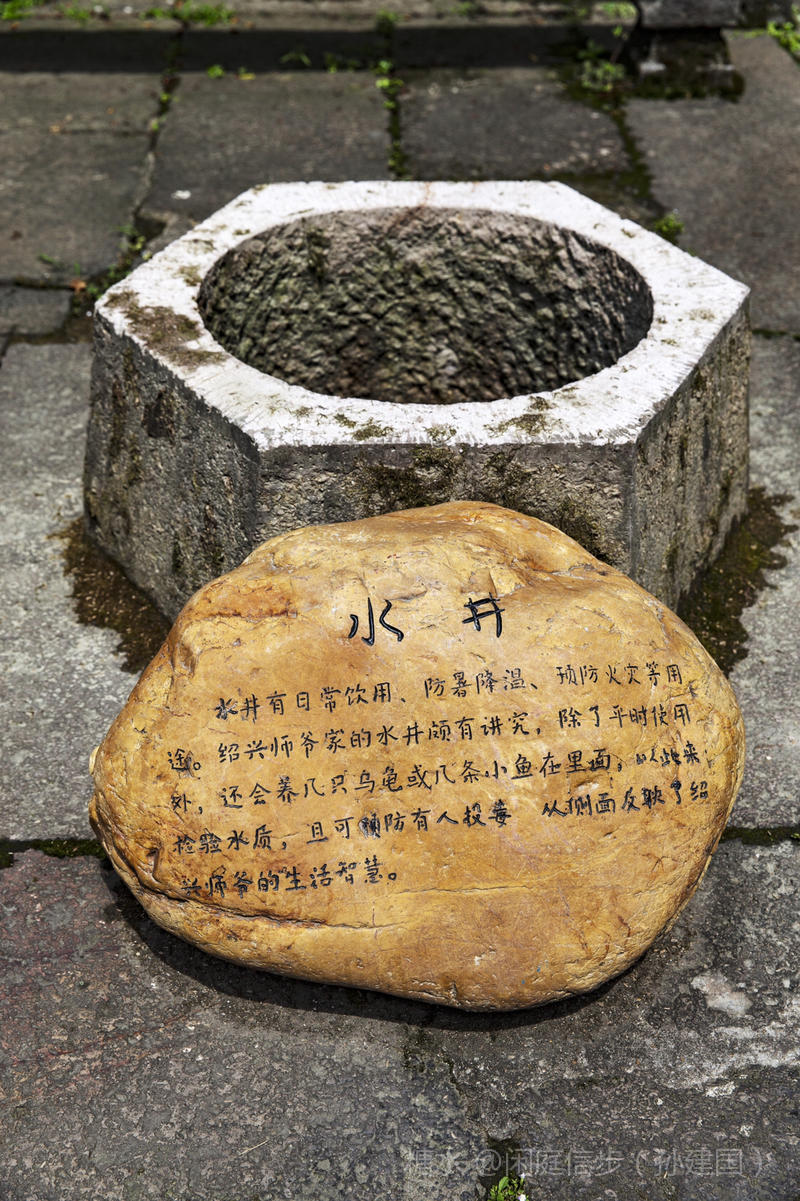 水井
水井有日常饮用、防暑降温、预防火灾等用
途。绍兴师爷家的水井颇有讲究，除了平时使用
外，还会养几只乌龟或几条小鱼在里面，以此来
检验水质，且可预防有人投毒 从侧面反映了绍
兴师爷的生活智慧。
@闲庭信步（孙建国）